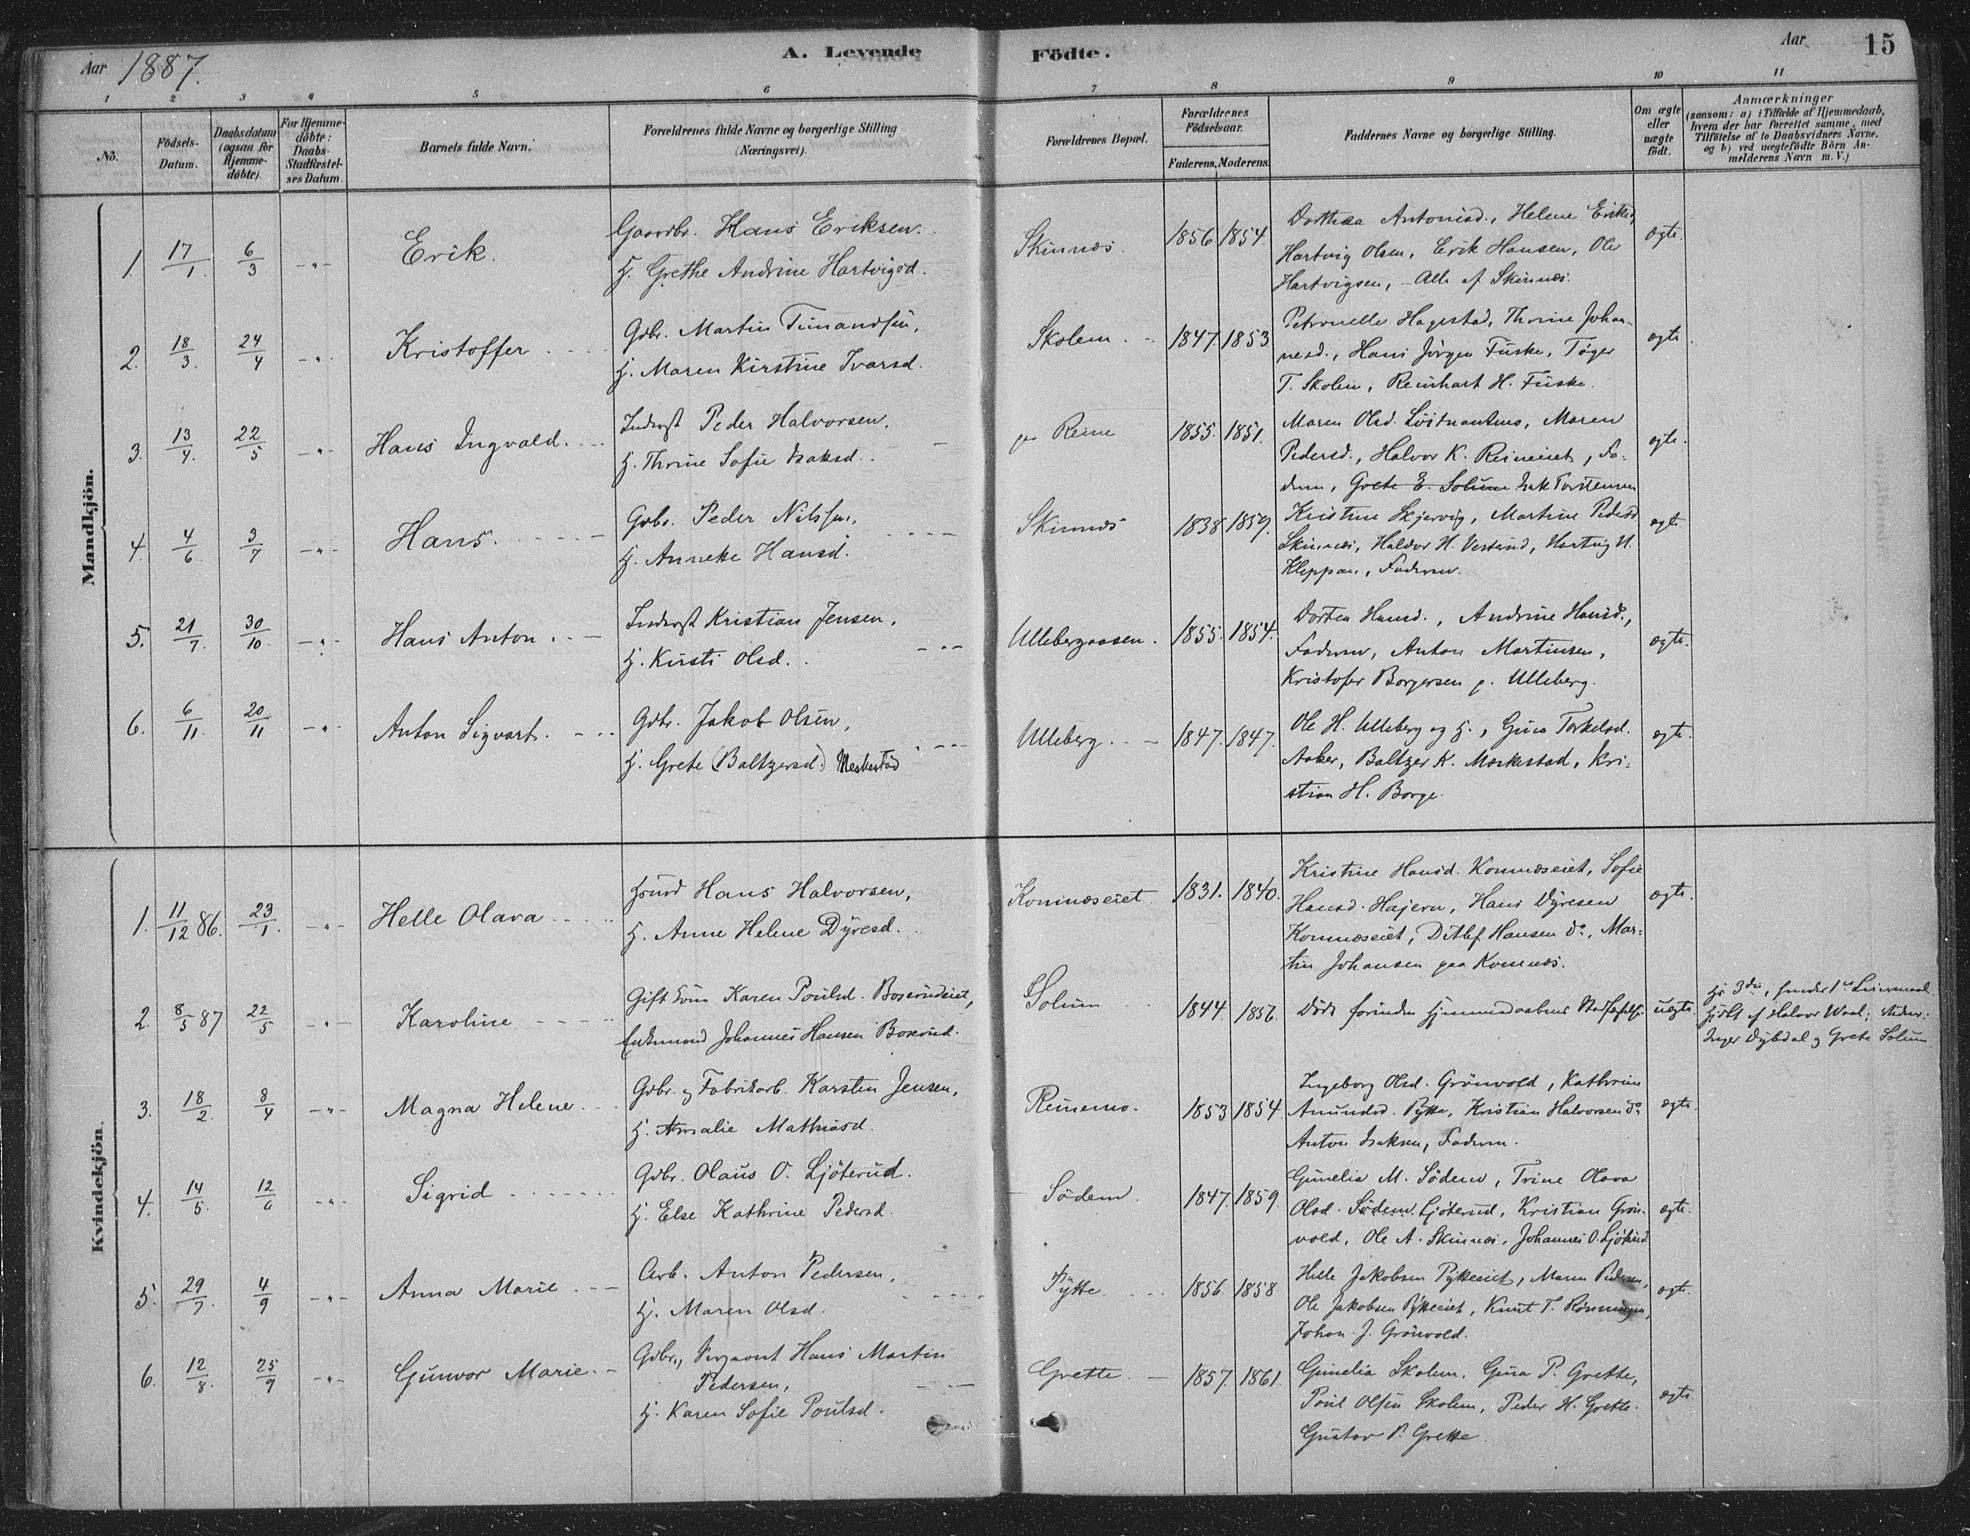 Aar 1887.
A. Levende Födte.
Aar
15
1 2 3 4 5 6 7 8 9 10 11
No.
Födsels-
Datum.
Daabsdatum
(ogsaa for
Hjemme-
döbte).
For Hjemme-
döbte:
Daabs-
Stadfæstel-
ses Datum.
Barnets fulde Navn.
Forældrenes fulde Navne og borgerlige Stilling
(Næringsvei).
Forældrenes Bopæl.
Forældrenes
Födselsaar.
Faderens. Moderens.
Faddernes Navne og borgerlige Stilling.
Om ægte
eller
uægte
født.
Anmærkninger
(saasom: a) i Tilfælde af Hjemmedaab,
hvem der har forrettet samme, med
Tilföielse af to Daabsvidners Navne,
og b) ved uægtefödte Börn An-
melderens Navn m. V.)
Mandkjön.
1. 17/1 6/3 -"- Erik.
Gaardbr. Hans Eriksen.
H. Grethe Andrine Hartvigsd.
Skinnæs. 1856 1854.
Dorthea Antonisd., Helene
Hartvig Olsen, Erik Hansen, Ole
Hartvigsen, - Alle af Skinnæs.
ægte.
2. 18/3 24/4 -"- Kristoffer
Gdbr. Martin
H. Maren Kirstine Ivarsd.
Skolem. 1847. 1853
Petronelle Hagestad, Thrine Johan-
nesd., Hans Jörgen Fuske, Töger
T. Skolem, Reinhart H. Fuske.
ægte
3. 13/4. 22/5 -"- Hans Ingvald.
Inderst Peder Halvorsen,
H. Thrine Sofie Isaksd.
Reine 1855. 1851.
Maren Olsd. Maren
Pedersd., Halvor K. Reineiet, Fa-
deren, Grete E. Solum Isak Torstensen
ægte.
4. 4/6 3/7 -"- Hans.
Gdbr. Peder Nilssen,
H. Anneke Hansd.
Skinnæs 1838 1859.
Kristine Skjervig, Martine Pedersd
Skinnæs, Haldor H. Hartvig N.
Kleppan, Faderen.
ægte
5. 21/7. 30/10 -"- Hans Anton.
Inderst Kristian Jensen,
H. Kirsti Olsd.
Ullebergaasen. 1855. 1854.
Dorten Hansd., Andrine Hansd.,
Faderen, Anton Martinsen,
Kristofer Borgersen p. Ulleberg.
ægte.
6. 6/11. 20/11 -"- Anton Sigvart.
Gdbr. Jakob Olsen,
H. Grete (Baltzersd.) Meskestad
Ulleberg. 1847. 1847.
Ole H. Ulleberg og H., Guro Torkelsd.
Aaker, Baltzer K. Mæskestad, Kri-
stian H. Borge.
ægte.
Kvindekjön.
1. 11/12 86. 23/1. -"- Helle Olava
Husmd Hans Halvorsen,
H. Anne Helene Dyresd.
Komnæseiet. 1831. 1840.
Kristine Hansd. Komnæseiet, Sofie
Hansd. Hajern, Hans Dyresen
Komnæseiet, Ditlef Hansen do, Mar-
tin Johansen paa Komnæs.
ægte.
2. 8/5 87 22/5 -"- Karoline
Gift Karen Poulsd. Boserudeiet,
Enkemand Johannes Hansen Boserud.
Solum 1844. 1856.
Døde forinden Hjemmedaabens
uægte.
Hs 3die, hendes 1ste Leiermaal.
Hjdbt af Halvor Waal; Vidner:
Inger Dybdal og Grete Solum
3. 18/2. 8/4 -"- Magna Helene.
Gdbr. og Fabrikarb. Karsten Jensen,
H. Amalie Mathiasd.
Reinemo. 1853 1854
Ingeborg Olsd. Grönvold, Kathrine
Amundsd. Pytte, Kristian Halvorsen do
Anton Isaksen, Faderen.
ægte.
4. 14/5. 12/6 -"- Sigrid
Gdbr. Olaus O. Ljöterud.
H. Else Kathrine Pedersd.
Södem. 1847. 1859.
Gunelia M. Södem, Trine Olava
Olsd. Södem. Ljöterud, Kristian Grön-
vold, Ole A. Skinnæs, Johannes O. Ljöterud
ægte.
5. 29/7. 4/9 -"- Anna Marie
Arb. Anton Pedersen,
H. Maren Olsd.
Pytte. 1856. 1858
Helle Jakobsen Pytteeiet, Maren Pedersen,
Ole Jakobsen Pytteeiet, Knut T. Rönningen,
Johan J. Grönvold.
ægte.
6. 12/8. 25/9 -"- Gunvor Marie.
Gdbr., Sergeant Hans Martin
Pedersen,
H. Karen Sofie Poulsd.
Grette. 1857. 1861.
Gunelia Skolem, Guro P. Grette,
Poul Olsen Skolem, Peder H. Grette.
Gustav P. Grette.
ægte.